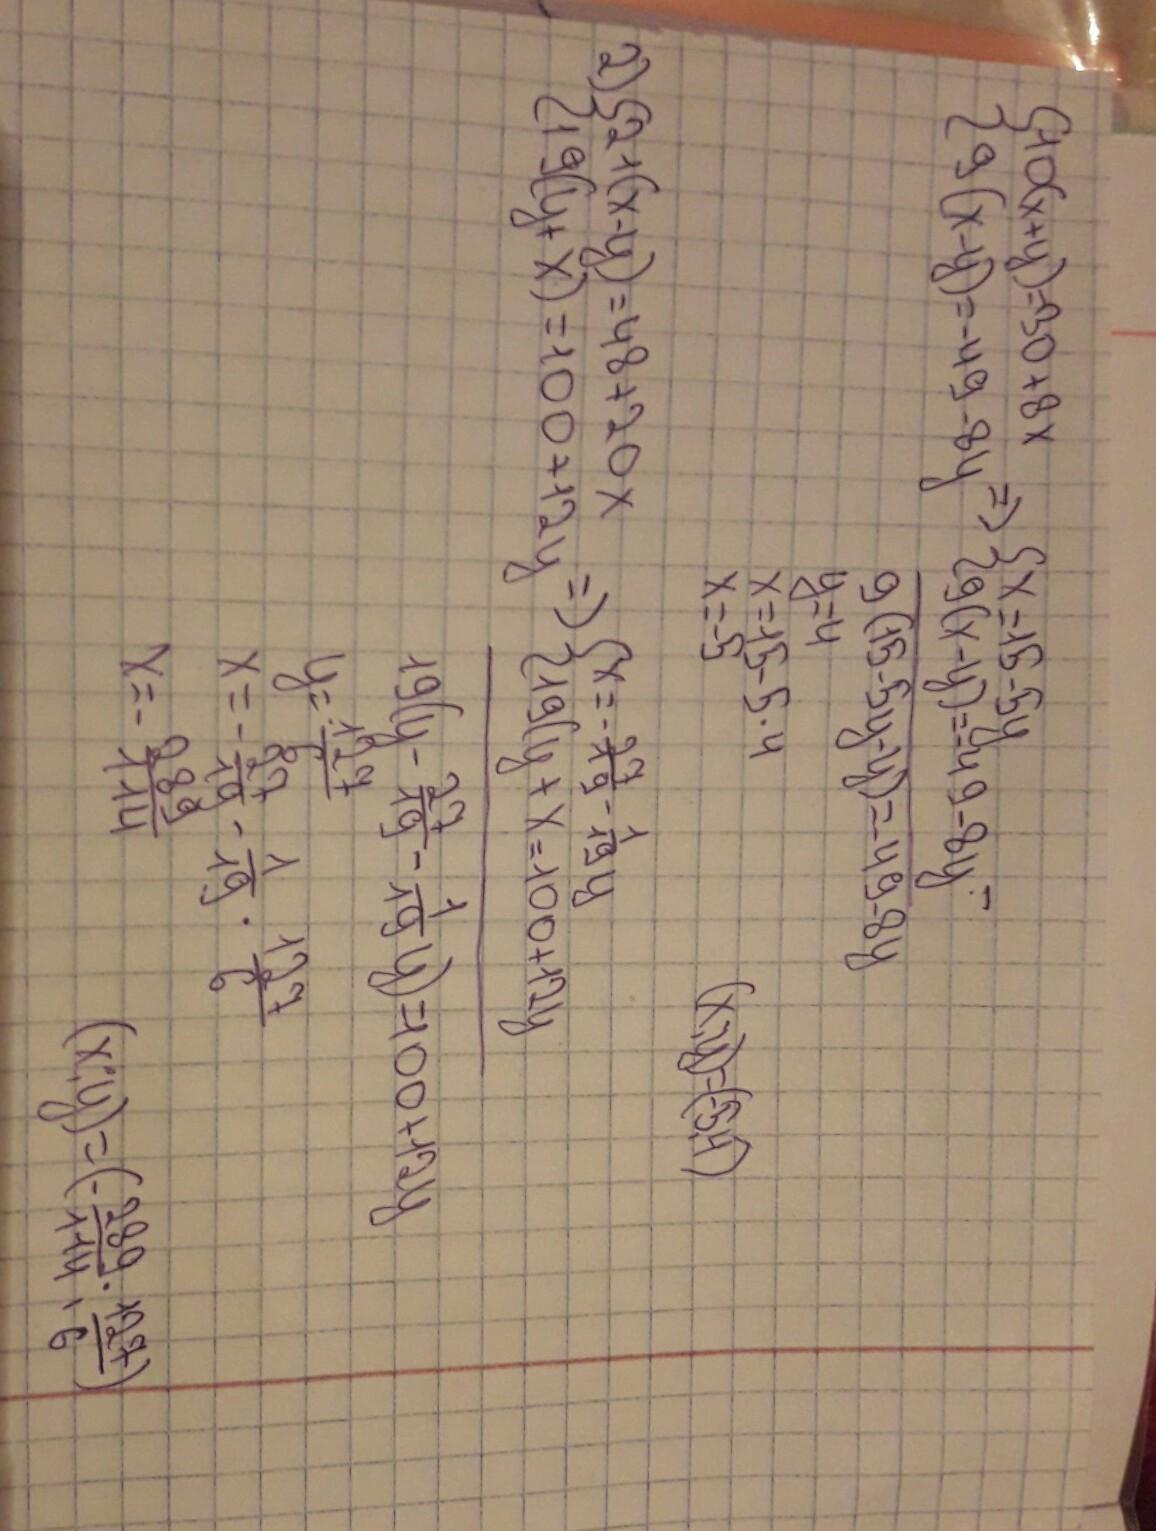 {10(x+y)=30+8x
{9(x-y)=-49-8y => {x=15-5y
{9(x-y)=-49-8y
9(15-5y-y)=-49-8y
y=4
x=15-5·4
x=-5
(x,y)=(-5,4)
2) {21(x-y)=48+20x
{19(y+x)=100+12y => {x=-27/19-1/19y
{19(y+x=100+12y
19(y-27/19-1/19y)=100+12y
y=127/6
x=-27/19-1/19·127/6
x=-289/114
(x;y)=(-289/114;127/6)